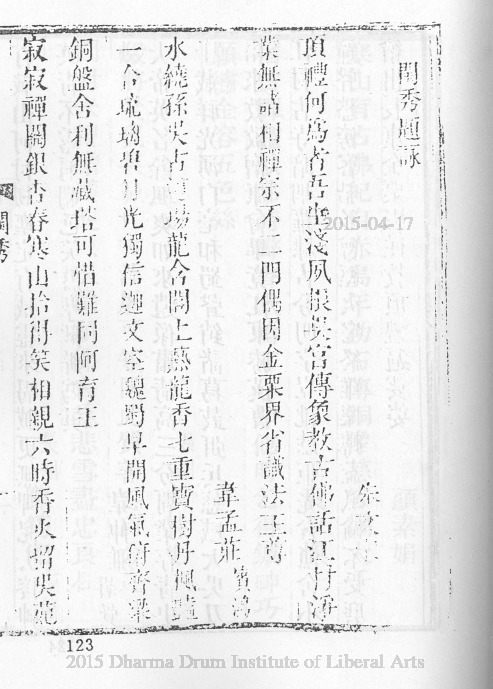 閨秀題詠
頂禮何為者吾生淺夙根吳宮傳象教古佛話江村淨
業無諸相禪宗不二門偶因金粟界省識法王尊
韋孟莊
水繞孫吳古道場龍含閣上熱龍香七重寶樹丹楓
一合琉璃碧月光獨信迦文空魏蜀早開風氣
銅盤舍利無藏塔可惜難同阿育王
寂寂禪關銀杏春寒山拾得笑相親六時香火留吳苑
閨秀
一
2015-04-17
123
2015 Dharma Drum Institute of Liberal Arts